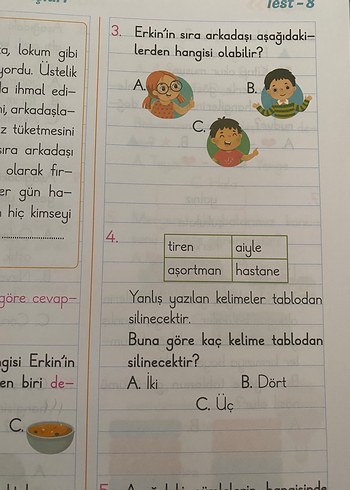 Test - 8
a, lokum gibi
yordu. Üstelik
a ihmal edi-
ni, arkadaşla-
z tüketmesini
sıra arkadaşı
olarak fır-
er gün ha-
hiç kimseyi
göre cevap-
gisi Erkin'in
en biri de-
C.
3. Erkin'in sıra arkadaşı aşağıdaki-
lerden hangisi olabilir?
A.
B.
C.
4.
tiren aiyle
aşortman hastane
Yanlış yazılan kelimeler tablodan
silinecektir.
Buna göre kaç kelime tablodan
silinecektir?
A. İki B. Dört
C. Üç